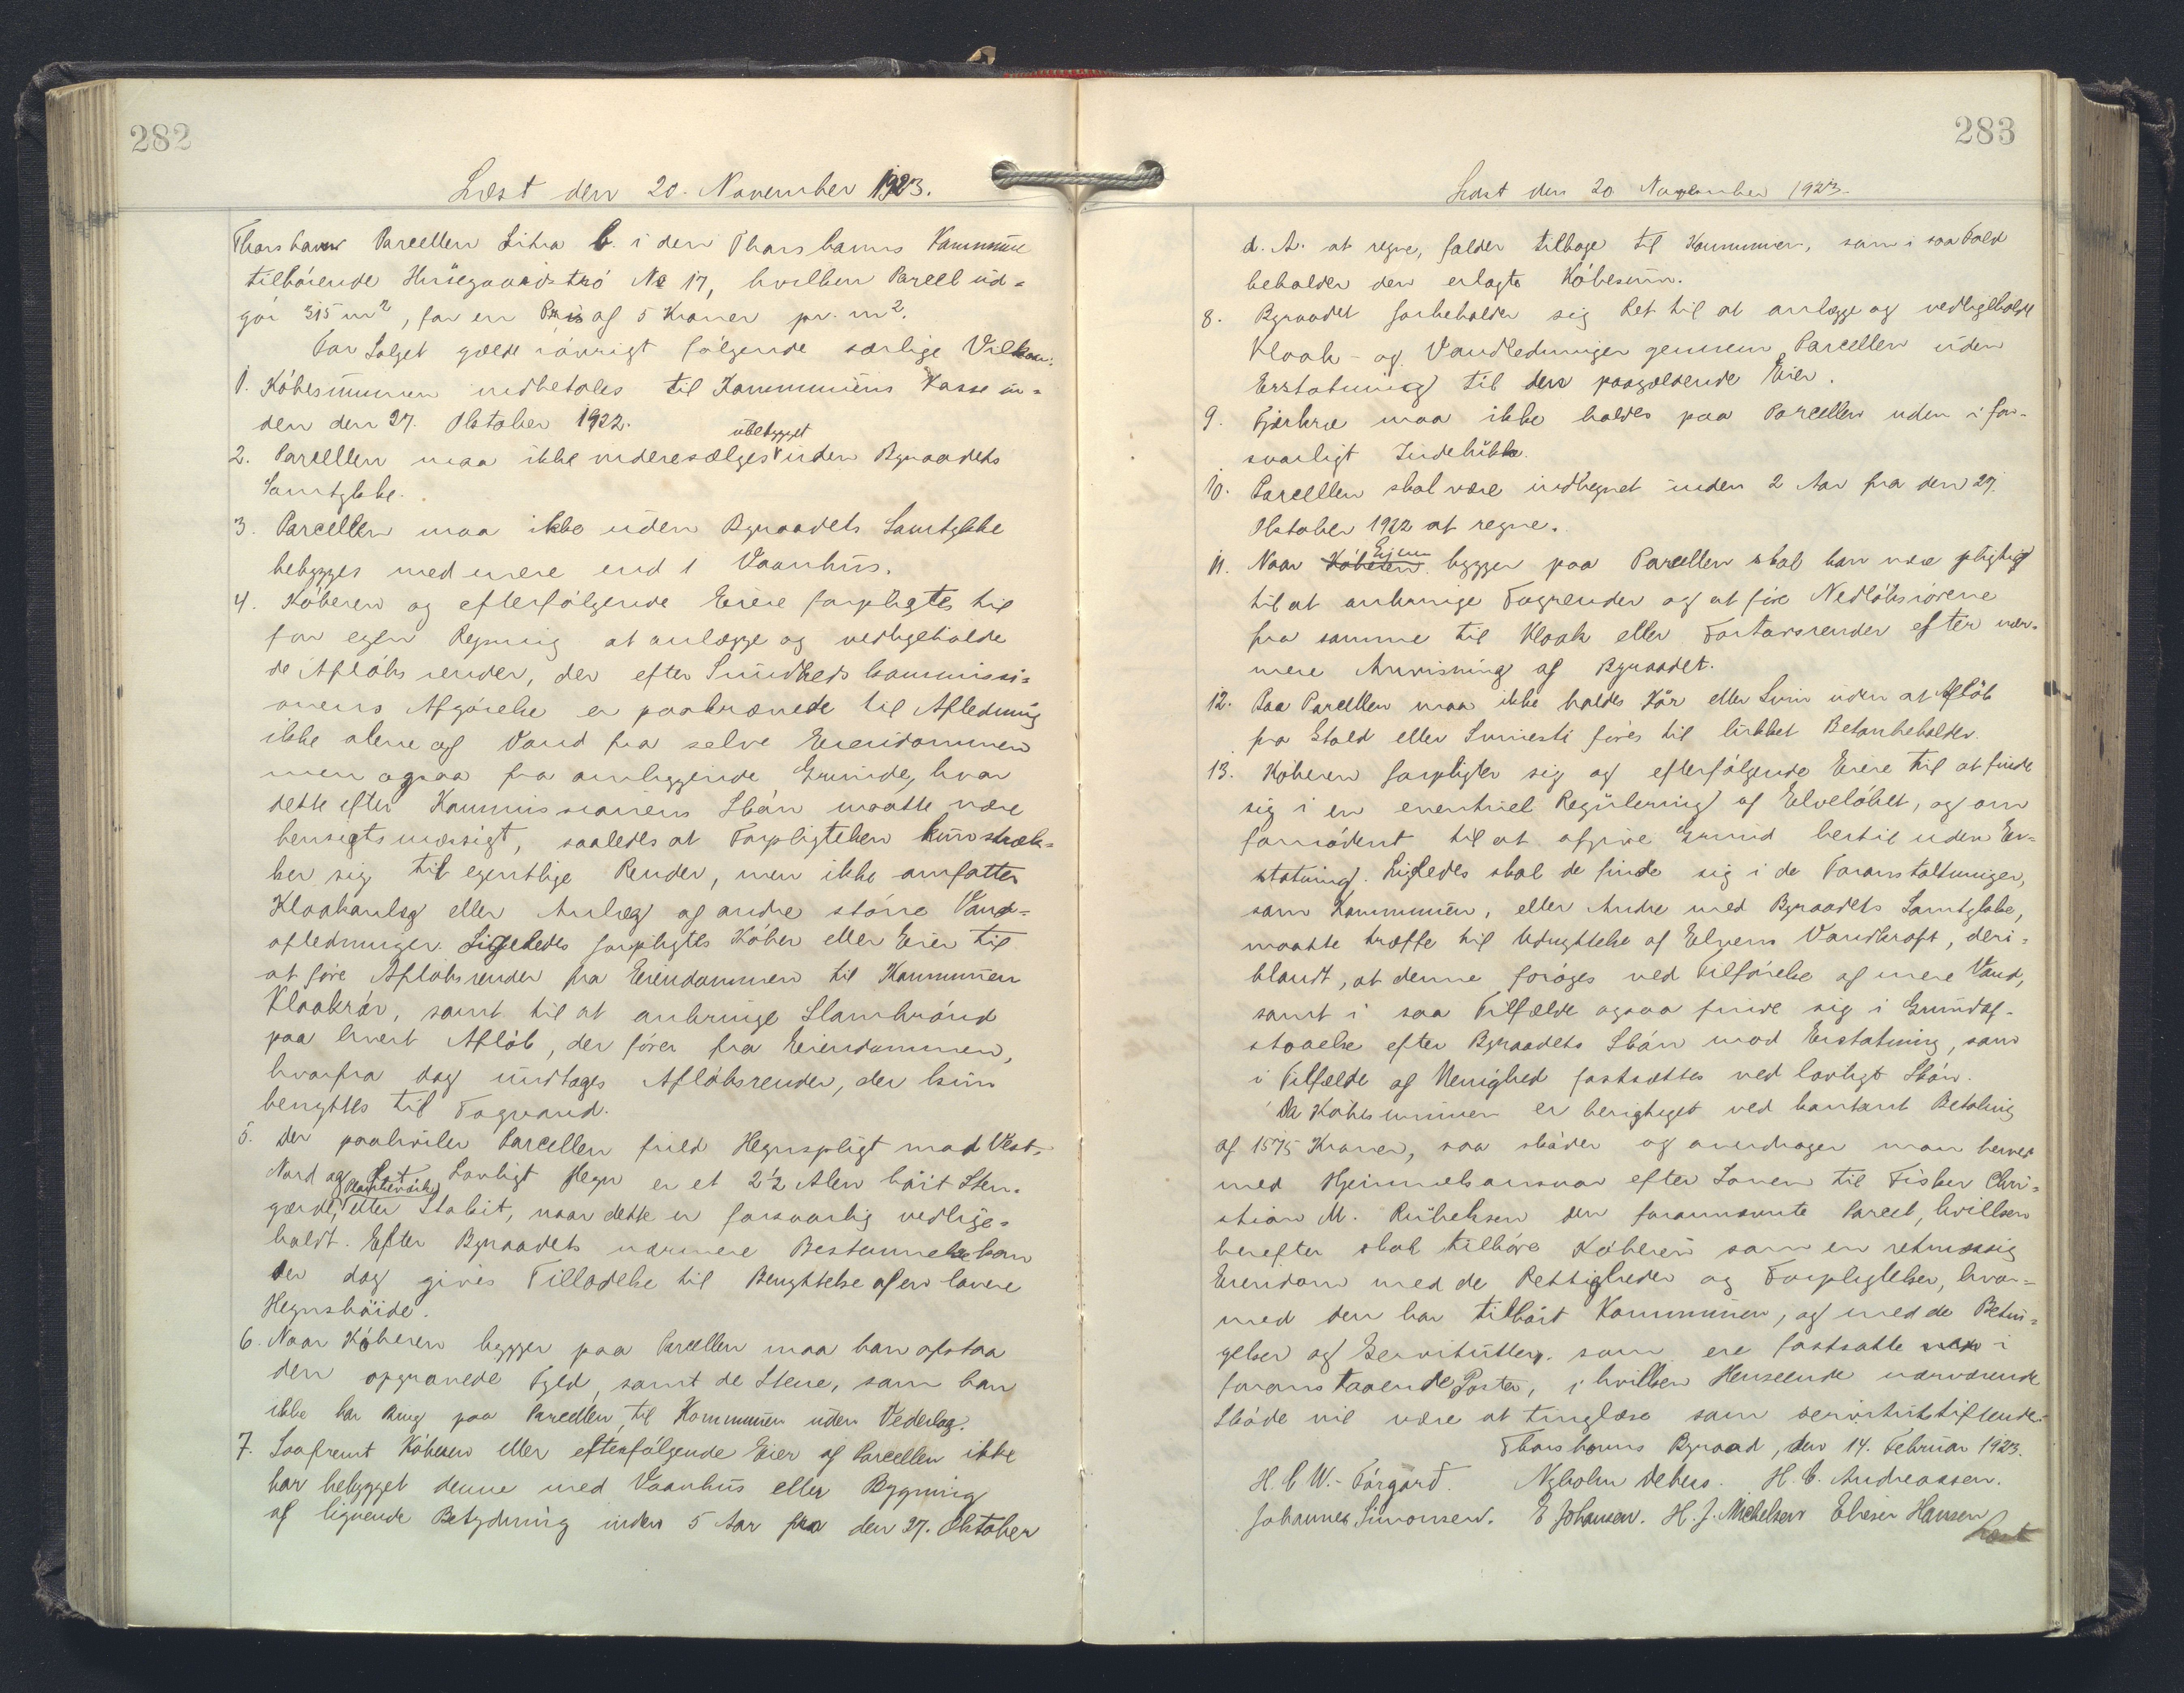 282
Læst den 20. November 1923.
Thorshavns Parcellen Litra C. i den Thorshavns Kommune
tilhørende Husegaardstrø No 17, hvilken Parcel ud=
gør 315 m², for en Pris af 5 Kroner pr. m².
For Salget gælde iøvrigt følgende særlige Vilkaar:
1. Købesummen indbetales til Kommunens Kasse in=
den den 27. Oktober 1922.
ubebygget
2. Parcellen maa ikke videresælges uden Byraadets
Samtykke.
3. Parcellen maa ikke uden Byraadets Samtykke
bebygges med mere end 1 Vaanhus.
4. Køberen og efterfølgende Eiere forpligtes til
for egen Regning at anlægge og vedligeholde
de Afløbsrender, der efter Sundhedskommissi=
onens Afgørelse er paakrævede til Afledning
ikke alene af Vand fra selve Eiendommen
men ogsaa fra omliggende Grunde, hvor
dette efter Kommissionens Skøn maatte være
hensigtsmæssigt, saaledes at Forpligtelsen kun stræk=
ker sig til egentlige Render, men ikke omfatter
Kloakanlæg eller Anlæg af andre større Vand=
afledninger. Ligeledes forpligtes Køber eller Eier til
at føre Afløbsrender fra Eiendommen til Kommunen
Kloakrør, samt til at anbringe Slambrønd
paa hvert Afløb, der fører fra Eiendommen,
hvorfra dog undtages Afløbsrender, der kun
benyttes til Tagvand.
5. Der paahviler Parcellen fuld Hegnspligt mod Vest,
Nord og Øst. Lovligt Hegn er et 2½ Alen høit Sten=
gærde, eller Stakit, naar dette er forsvarlig vedlige=
holdt. Efter Byraadets nærmere Bestemmelse kan
der dog gives Tilladelse til Benyttelse af en lavere
Hegnshøide.
6. Naar Køberen bygger paa Parcellen maa han afstaa
den opgravede Fyld, samt de Stene, som han
ikke har Brug paa Parcellen, til Kommunen uden Vederlag.
7. Saafremt Køberen eller efterfølgende Eier af Parcellen ikke
har bebygget denne med Vaanhus eller Bygning
af lignende Betydning inden 5 Aar fra den 27. Oktober
283
Læst den 20 November 1923.
d. A. at regne, falder tilbage til Kommunen, som i saa Fald
beholder den erlagte Købesum.
8. Byraadet forbeholder sig Ret til at anlægge og vedligeholde
Kloak- og Vandledninger gennem Parcellen uden
Erstatning til den paagældende Eier.
9. Fjerkræ maa ikke holdes paa Parcellen uden i for-
svarligt Indelukke.
10. Parcellen skal være indhegnet inden 2 Aar fra den 27.
Oktober 1922 at regne.
Eieren
11. Naar Køberen bygger paa Parcellen skal han være pligtig
til at anbringe Tagrender og at føre Nedløbsrørene
fra samme til Kloak eller Fortovsrender efter nær=
mere Anvisning af Byraadet.
12. Paa Parcellen maa ikke holdes Kør eller Svin uden at Afløb
fra Stald eller Svinesti føres til lukket Betonbeholder.
13. Køberen forpligter sig og efterfølgende Eiere til at finde
sig i en eventuel Regulering af Elveløbet, og om
fornødent til at afgive Grund hertil uden Er=
statning. Ligeledes skal de finde sig i de Foranstaltninger,
som Kommunen, eller Andre med Byraadets Samtykke,
maatte træffe til Udnyttelse af Elvens Vandkraft, deri=
blandt, at denne forøges ved Tilførelse af mere Vand,
samt i saa Tilfælde ogsaa finde sig i Grundaf-
staaelse efter Byraadets Skøn mod Erstatning, som
i Tilfælde af Uenighed fastsættes ved lovligt Skøn.
Da Købesummen er berigtiget ved kontant Betaling
af 1575 Kroner, saa skøder og overdrager man herved
med Hjemmelsansvar efter Loven til Fisker Chri=
stian M. den forannævnte Parcel, hvilken
herefter skal tilhøre Køberen som en retmæssig
Eiendom med de Rettigheder og Forpligtelser, hvor=
med den har tilhørt Kommunen, og med de Betin=
gelser og Servitutter, som ere fastsatte i
foranstaaende Poster, i hvilken Henseende nærværende
Skøde vil være at tinglæse som servitutstiftende.
Thorshavns Byraad, den 14. Februar 1923.
H. C. W. Tórgarð. Nyholm Debess. H. C. Andreassen.
Johannes Simonsen. E Johansen. H. J. Michelsen Elieser Hansen
Læst